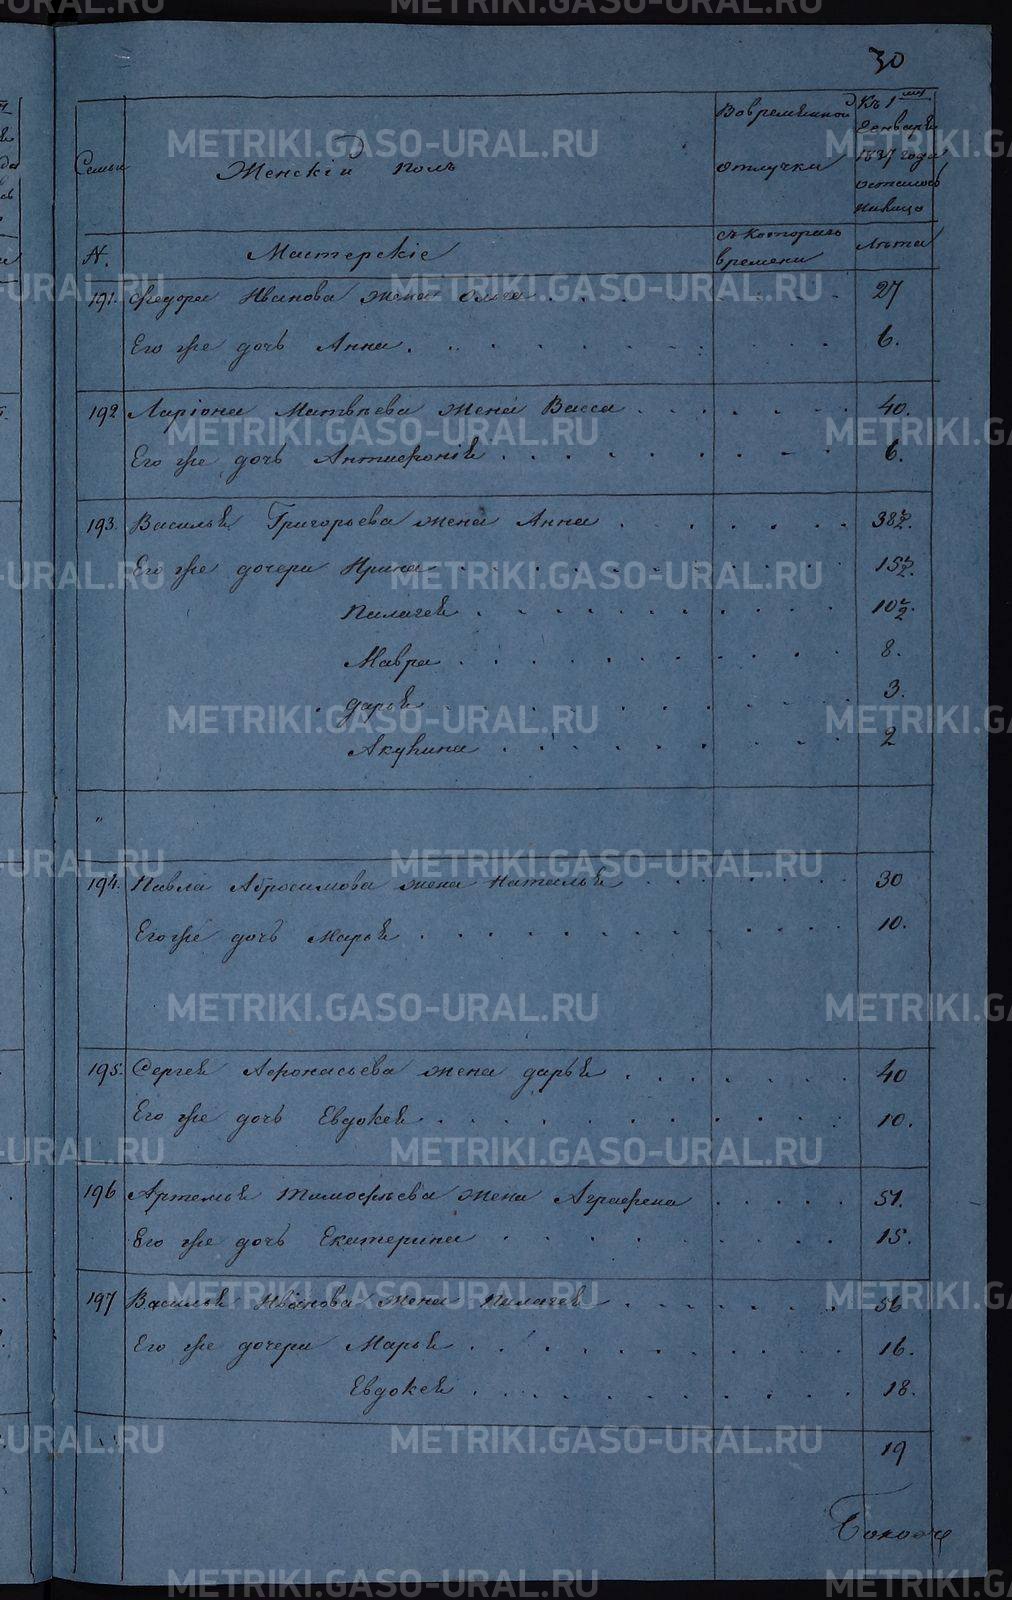 30
Семьи
Женскій полъ
Вовременной отлучки
Къ 1му Генваря 1837 года осталось налицо
№.
Мастерскіе
съ котораго времени
Лѣта
191. Федора Иванова жена Ольга 27
Его же дочь Анна. 6.
192 Ларіона Матвѣева жена Васса 40.
Его же дочь Антисфонія 6.
193. Василья Григорьева жена Анна 38½.
Его же дочери Ирина 15½.
Палагея 10½.
Мавра 8.
дарья 3.
Акулина 2
"
194. Павла Абросимова жена Наталья 30
Его же дочь Марья 10.
195. Сергея Афонасьева жена дарья 40
Его же дочь Евдокея 10.
196 Артемья Тимофѣева жена Аграфена 51.
Его же дочь Екатерина 15.
197 Василья Иванова жена Палагея 56
Его же дочери Марья 16.
Евдокея 18.
19
METRIKI.GASO-URAL.RU